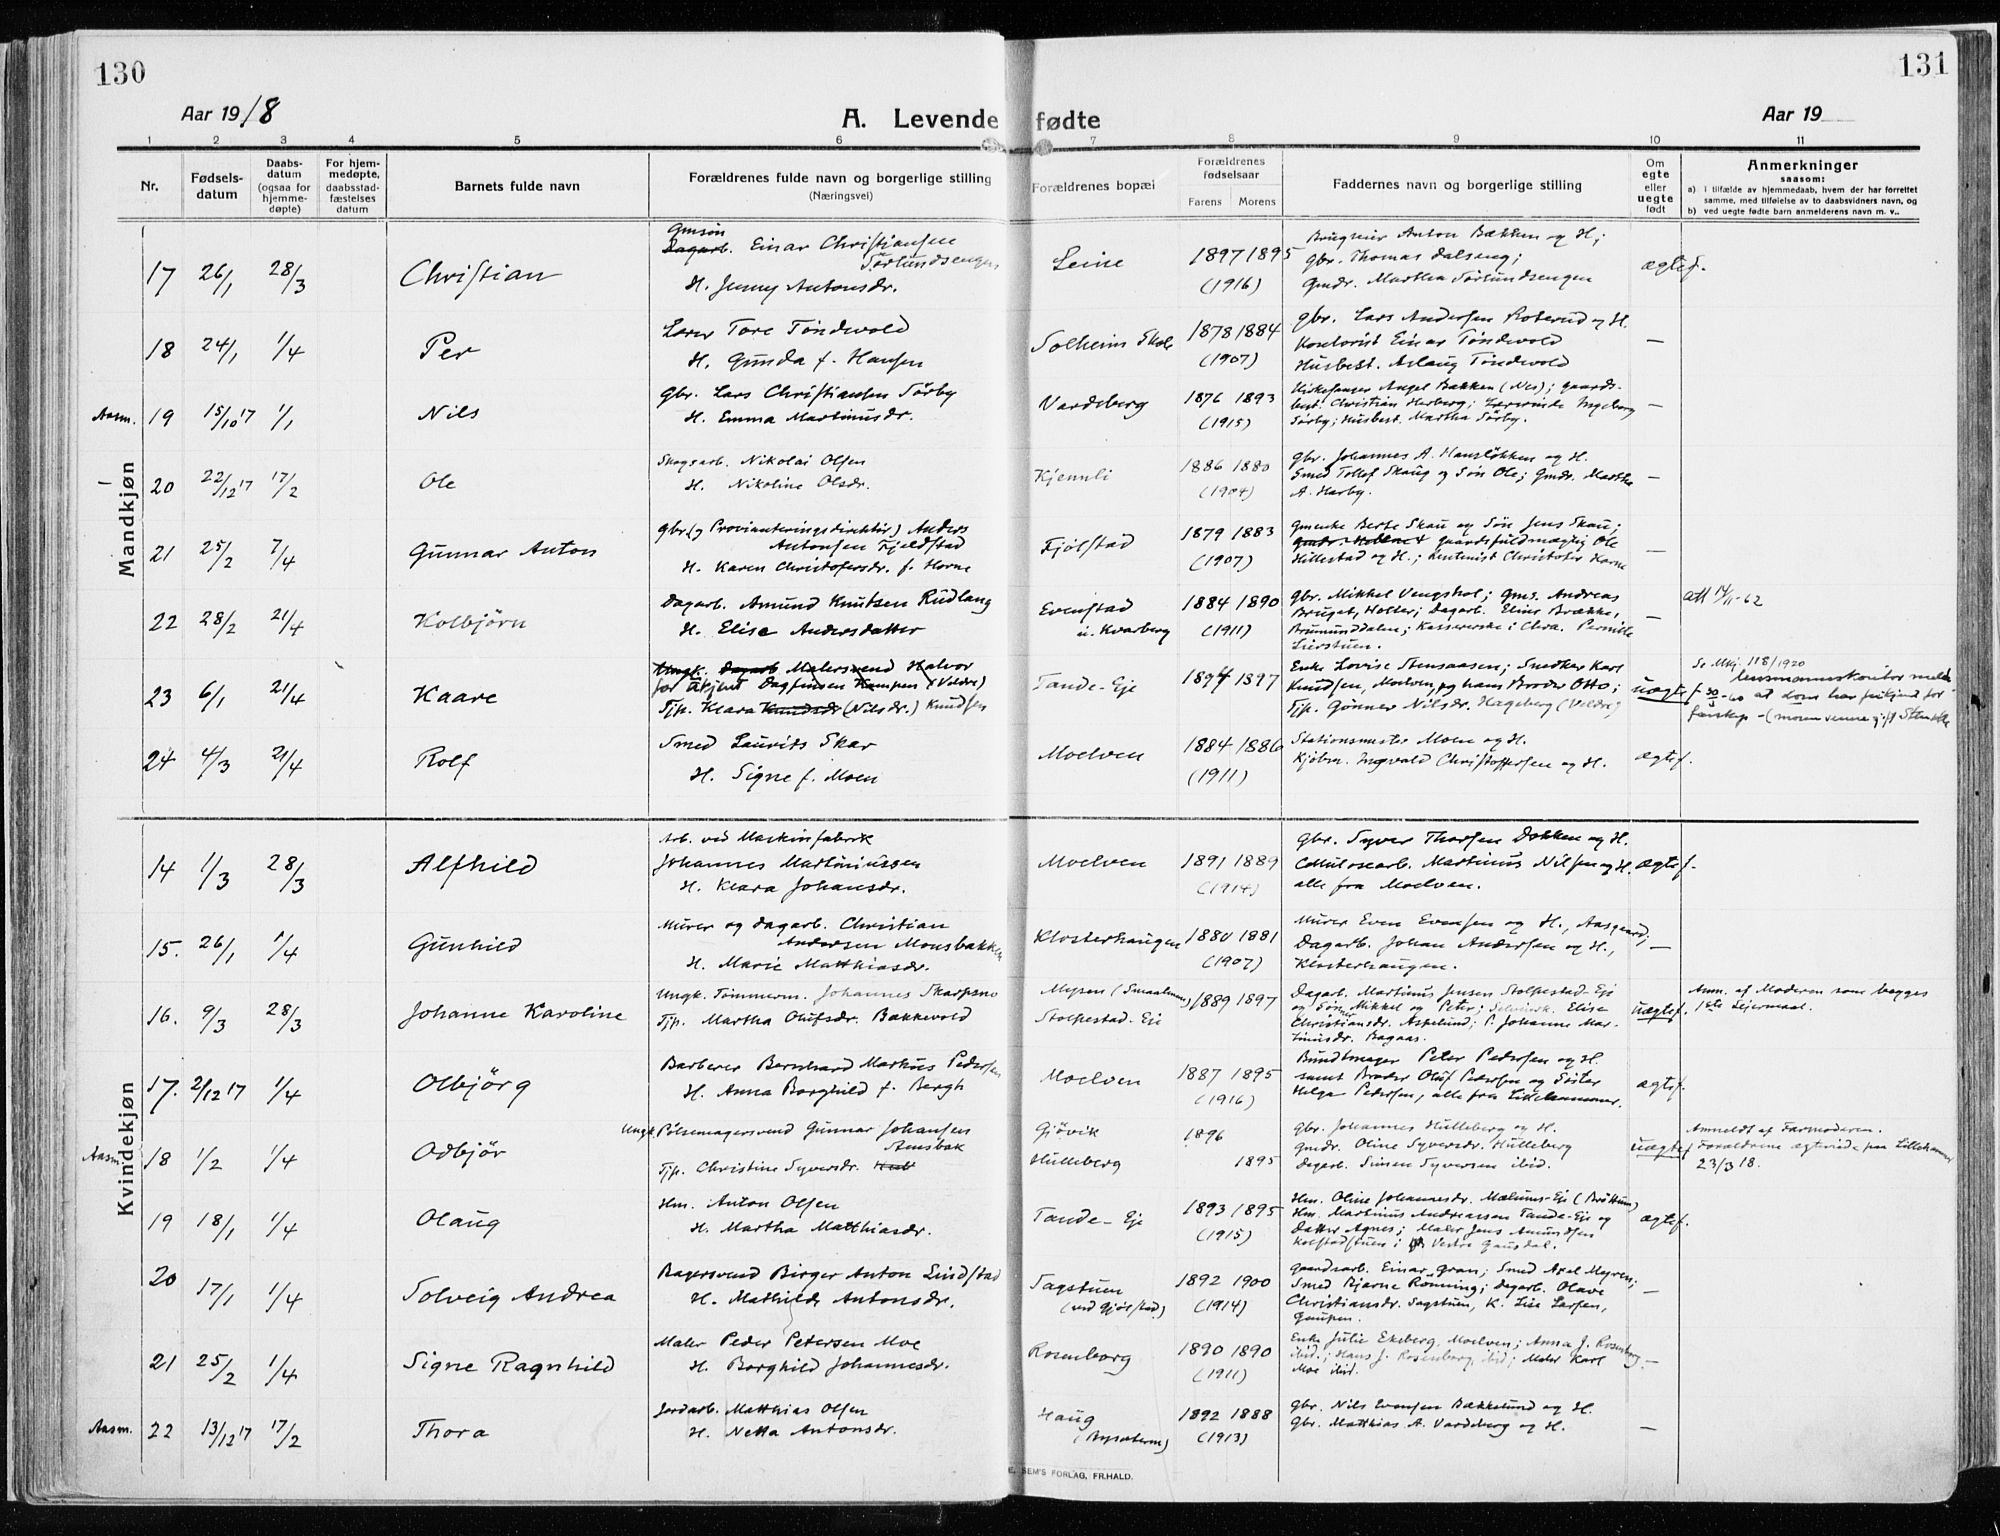 130
131
Aar 1918
A. Levende fødte
Aar 19
1 2 3 4 5 6 7 8 9 10 11
Nr.
Fødsels-
datum
Daabs-
datum
(ogsaa for
hjemme-
døpte)
For hjem-
medøpte,
daabsstad-
fæstelses
datum
Barnets fulde navn
Forældrenes fulde navn og borgerlige stilling
(Næringsvei)
Forældrenes bopæl
Forældrenes
fødselsaar
Farens Morens
Faddernes navn og borgerlige stilling
Om
egte
eller
uegte
født
Anmerkninger
saasom:
a) i tilfælde av hjemmedaab, hvem der har forrettet
samme, med tilføielse av to daabsvidners navn, og
b) ved uegte fødte barn anmelderens navn m. v..
Mandkjøn
17 26/1 28/3 Christian
Gmsøn
Dagarb. Einar Christiansen
Sørlundsengen
H. Jenny Antonsdr.
Leine
1897 1895
(1916)
Anton Bækken og H;
gbr. Thomas Dalseng;
Gmdr. Martha Sørlundsengen
ægtef.
18 24/1 1/4 Per
Lærer Tore Töndevold
H. Gunda f. Hansen
Solheim Skole
1878 1884
(1907)
gbr. Lars Andersen Roterud og H.
Kontorist Einar Töndevold
Husbest. Aslaug Töndevold
—
Aasm. 19 15/10 17 1/1 Nils
Gbr. Lars Christiansen Sörby
H. Emma Martinusdr.
Vardeberg
1876 1893
(1915)
Kirkesanger Angel Bækken (Nes); gaards-
best. Christian Herberg; Lærerinde Ingeborg
Sörby; Husbest. Martha Sörby.
—
20 22/12 17 17/2 Ole
Skogsarb. Nikolai Olsen
H. Nikoline Olsdr.
Kjennli
1886 1880
(1904)
gbr. Johannes A. Hansløkken og H.
Smed Tollef Skaug og Søn Ole; Gmdr. Marthe
A. Harby.
—
21 25/2 7/4 Gunnar Anton
Gbr (og Provianteringsdirektör) Anders
Antonsen Fjeldstad
H. Karen Christofersdr. f. Horne
Fjölstad
1879 1883
(1907)
Gmenke Berte Skau og Sön Jens Skau;
gaardsfuldmægtig Ole
Hillestad og H.; Christofer Horne
—
22 28/2 21/4 Kolbjörn
Dagarb. Amund Knutsen Rudlang
H. Elise Andersdatter
Evenstad
u. Kvarberg
1884 1890
(1911)
gbr. Mikkel Vengshol; gms. Andreas
Bruget, Holter; Dagarb. Elias Brække,
Brumunddalen; Kassererske i Chra. Pernille
Lierstuen.
—
att 14/11-62
23 6/1 21/4 Kaare
Ungk. Dagarb Malersvend Halvor
Dagfinsen Kampen (Veldre)
Tjp. Klara Knudsdr (Nilsdr.) Knudsen
Tande-Eje
1894 1897
Enke Lovise Stensaasen; Smedker Karl
Knudsen, Moelven, og hans Broder Otto;
Tjp. Gönner Nilsdr. Hageberg (Veldre)
uægtef
Se Mkj. 118/1920
24 4/3 21/4 Rolf
Smed Laurits Skar
H. Signe f. Moen
Moelven
1884 1886
(1911)
Stationsmester Moen og H.
Kjöbm. Ingvald Christoffersen og H.
ægtef.
Kvindekjøn
14 1/3 28/3 Alfhild
Arb. ved Maskinfabrik
Johannes Martiniussen
H. Klara Johansdr.
Moelven
1891 1889
(1914)
gbr. Syver Thorsen Dokken og H.
Cellulosearb. Martinus Nilsen og H.
alle fra Moelven.
ægtef.
15. 26/1 1/4 Gunhild
Murer og dagarb. Christian
Andersen Monsbakken
H. Marie Matthiasdr.
Klosterhaugen
1880 1881
(1907)
Murer Even Evensen og H., Aasgaard;
Dagarb. Johan Andersen og H.,
Klosterhaugen.
—
16. 9/3 28/3 Johanne Karoline
Ungk. Tömmerm. Johannes Skarpsno
Tjp. Martha Olufsdr. Bækkevold
Mysen (Smaalenene)
Stolpestad-Eje
1889 1897
Dagarb. Martinus Jensen Stolpestad-Eje
og Sönner Mikkel og Peter; Elise
Christiansdr. Aspelund; P. Johanne Mar-
tinusdr. Bagaas.
uægtef.
Anm. af Moderen som begges
1ste Lejermaal.
17. 2/12 17 1/4 Olbjörg
Barberer Bernhard Markus Pedersen
H. Anna Borghild f. Bergh
Moelven
1887 1895
(1916)
Bundtmager Peter Pedersen og H.
samt Broder Oluf Pedersen og Söster
Helga Pedersen, alle fra Lillehammer.
ægtef.
Aasm. 18 1/2 1/4 Odbjör
Ungk. Pölsemagersvend Gunnar Johansen
Stensbak
Tjp. Christine Syversdr.
Gjövik
Hulleberg
1896
1895
gbr. Johannes Hulleberg og H.
Gmdr. Oline Syversdr. Hulleberg
Dagarb. Simen Syversen ibid.
uægtef
Anmeldt af Farmoderen.
Forældrene ægteviede paa Lillehammer
23/3 18.
19 18/1 1/4 Olaug
Hm. Anton Olsen
H. Martha Matthiasdr.
Tande-Eje
1893 1895
(1915)
Hm. Oline Johannesdr. Mælums-Eje (Bröttum)
Hm. Martinus Andreassen Tande-Eje og
Datter Agnes; Maler Jens Amundsen
Kolstadstuen i Vestre Gausdal.
ægtef.
20 17/1 1/4 Solveig Andrea
Bagersvend Birger Anton Lindstad
H. Mathilde Antonsdr.
Sagstuen
(ved Gjölstad)
1892 1900
(1914)
Gaardsarb. Einar Gran; Smed Axel Myren;
Smed Bjarne Rönning; Dagarb. Olave
Christiansdr. Sagstuen, K. Lise Larsen,
Gaupen.
—
21 25/2 1/4 Signe Ragnhild
Maler Peder Petersen Moe
H. Borghild Johannesdr.
Rosenborg
1890 1890
(1911)
Enke Julie Ekeberg, Moelven; Anna J. Rosenborg
ibid.; Hans J. Rosenborg, ibid; Maler Karl
Moe ibid.
—
Aasm. 22 13/12 17 17/2 Thora
Jordarb. Matthias Olsen
H. Netta Antonsdr.
Haug
1892 1888
(1913)
gbr. Nils Evensen Bækkelund og H.
Gbr. Matthias A. Vardeberg og H.
—
SEM'S FORLAG, FR.HALD.